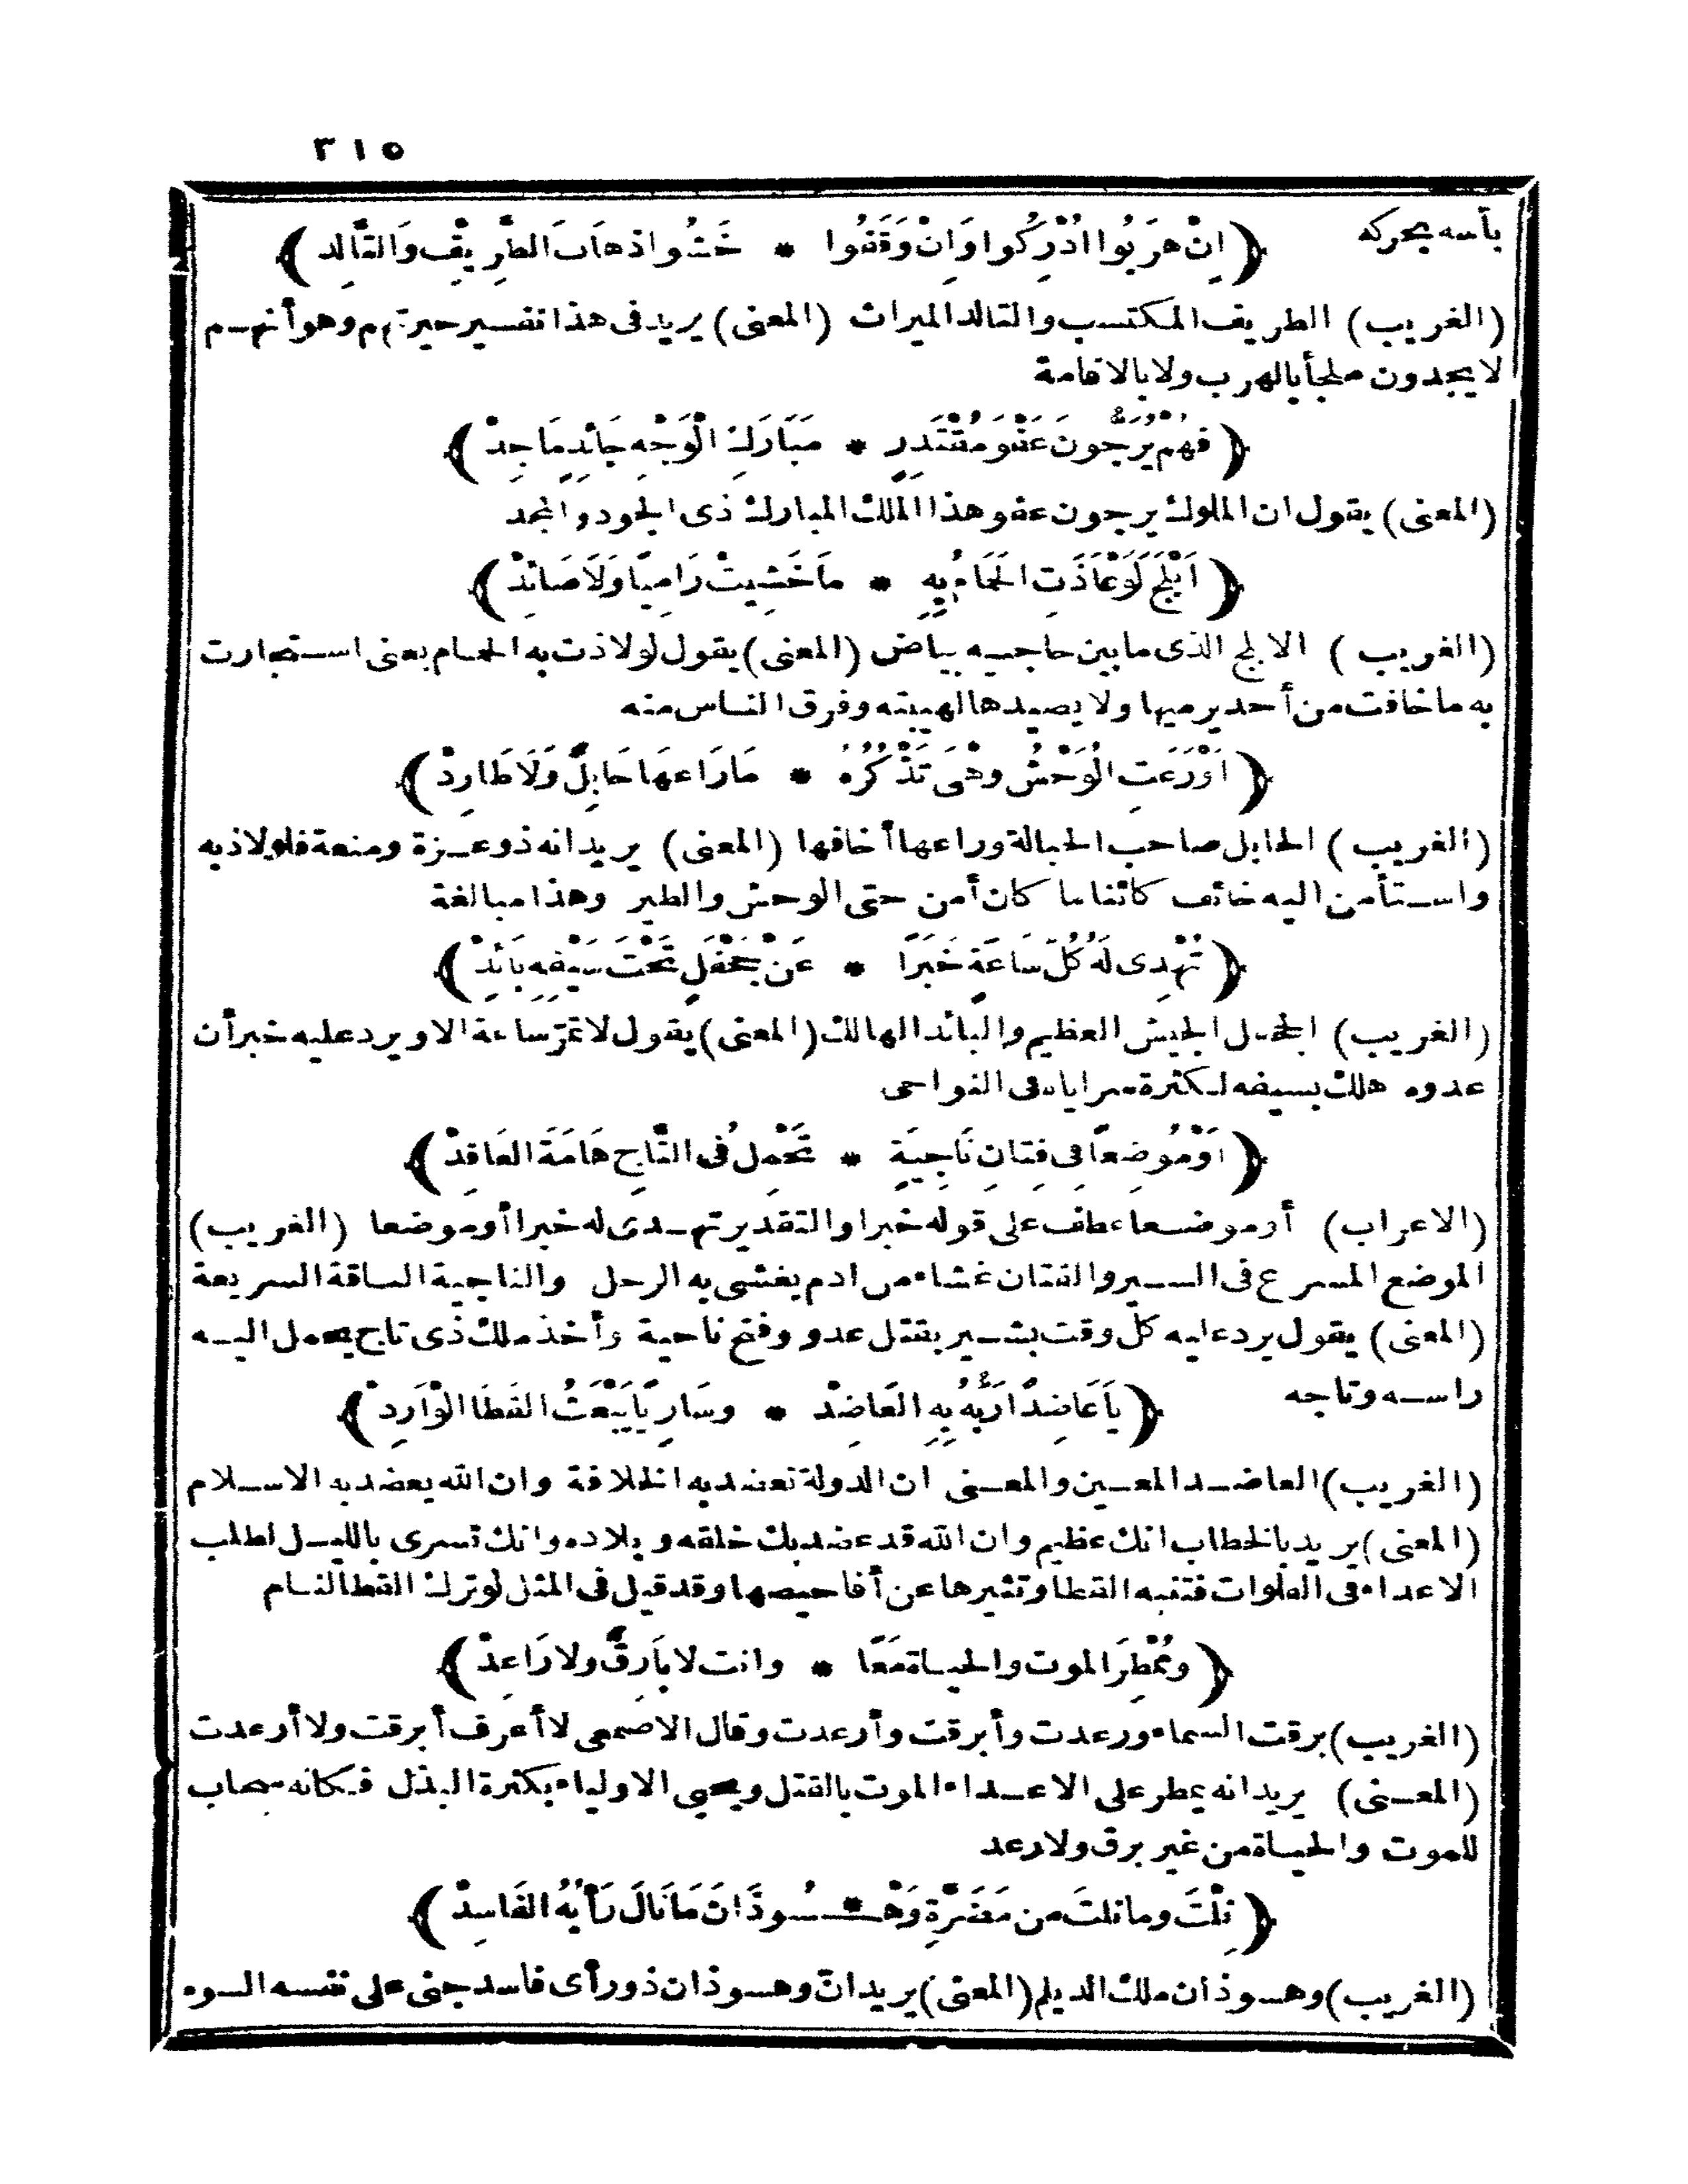 ٣١٥
بأسه يحركه ﴿ اِنْ هَرَبُوا اُدْرِكُوا وَاِنْ وَقَفُوا * خَشُوا ذهَابَ الطَّرِيفِ وَالتَّالد ﴾
(الغريب) الطريف المكتسب والتالد الميراث (المعنى) يريد فى هذا تفسير حيرتهم وهو أنهم
لا يجدون ملجأ بالهرب ولا بالاقامة
﴿ فهُمْ يُرَجُّونَ عَفْوَ مُقْتَدِرٍ * مُبَارَكِ الْوَجْهِ جَائِدٍ مَاجِدْ ﴾
(المعنى) يقول ان الملوك يرجون عفو هذا الملك المبارك ذى الجود والمجد
﴿ اَبْلَجَ لَوْ عَاذَتِ الحَمَامُ بِهِ * مَا خَشِيتْ رَامِيًا وَلَا صَائدْ ﴾
(الغريب) الابلج الذى ما بين حاجبيه بياض (المعنى) يقول لو لاذت به الحمام بعنى استجارت
به ما خافت من أحد يرميها ولا يصيدها لهيبته وفرق الناس منه
﴿ اَوْ رَعَتِ الْوَحْشُ وهْىَ تَذْكُرُهُ * مَا رَاعهَا حَابِلٌ وَلَا طَارِدْ ﴾
(الغريب) الحابل صاحب الحبالة وراعها أخافها (المعنى) يريد انه ذو عزة ومنعة فلو لاذ به
واستأمن اليه خائف كائنا ما كان أمن حتى الوحش والطير وهذا مبالغة
﴿ تُهْدِى لَهُ كُلُّ سَاعَةٍ خَبَرًا * عَنْ جَحْفَلٍ تَحْتَ سَيْفِهِ بَائِدْ ﴾
(الغريب) الجحفل الجيش العظيم والبائد الهالك (المعنى) يقول لا تمرّ ساعة الا ويرد عليه خبر أن
عدوه هلك بسيفه لكثرة سراياه فى النواحى
﴿ اَوْ مُوضِعًا فِى فِتَانِ نَاجِيَةٍ * تَحْمِلُ فى التَّاجِ هَامَةَ العَاقِدْ ﴾
(الاعراب) أو موضعا عطف على قوله خبرا والتقدير تهدى له خبرا أو موضعا (الغريب)
الموضع المسرع فى السير والفتان غشاء من ادم يغشى به الرحل والناجية الساقة السريعة
(المعنى) يقول يرد عليه كلّ وقت بشير بقتل عدو وفتح ناحية وأخذ ملك ذى تاج يحمل اليه
راسه وتاجه ﴿ يَا عَاضِدًا رَبُّهُ بِهِ العَاضِدْ * وسَارِيًا يَبْعَثُ القَطَا الْوَارِدْ ﴾
(الغريب) العاضد المعين والمعنى ان الدولة تعضد به الخلافة وان الله يعضد به الاسلام
(المعنى) يريد بالخطاب انك عظيم وان الله قد عضد بك خلقه وبلاده وانك تسرى بالليل لطلب
الاعداء فى الفلوات فتنبه القطا وتثيرها عن أفاحيصها وقد قيل فى المثل لو ترك القطا لنام
﴿ ومُمْطِرَ الموت والحياة مَعًا * وانت لا بَارِقٌ ولا رَاعِدْ ﴾
(الغريب) برقت السماء ورعدت وأبرقت وأرعدت وقال الاصمعى لا أعرف أبرقت ولا أرعدت
(المعنى) يريد انه يمطر على الاعداء الموت بالقتل ويحيى الاولياء بكثرة البذل فكانه سحاب
للموت والحياة من غير برق ولا رعد
﴿ نِلْتَ وما نلتَ من مَضَرَّةِ وَهْـ*ـسُوذَانَ مَا نَالَ رَأْيُهُ الفَاسِدْ ﴾
(الغريب) وهسوذان ملك الديلم (المعنى) يريد انّ وهسوذان ذو رأى فاسد جنى على نفسه السوء